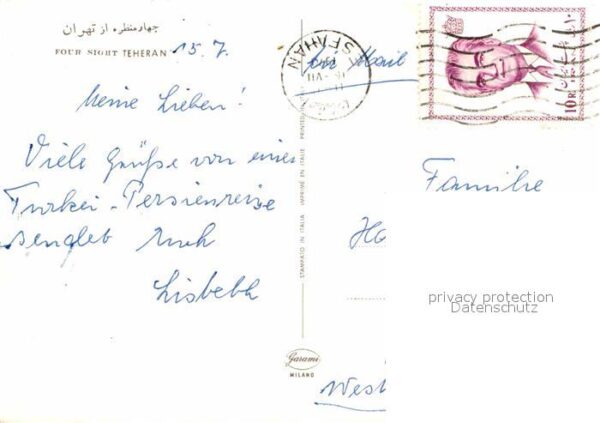 چهار منظره از تهران
FOUR SIGHT TEHERAN
15. 7.
Meine Lieben!
Viele Grüße von einer
Türkei - Persienreise
sendet Euch
Lisbeth
STAMPATO IN ITALIA - IMPRIMÉ EN ITALIE - PRINTED
Garami
MILANO
ISFAHAN
VII
Air Mail
10 R
Familie
Ha
West
privacy protection
Datenschutz